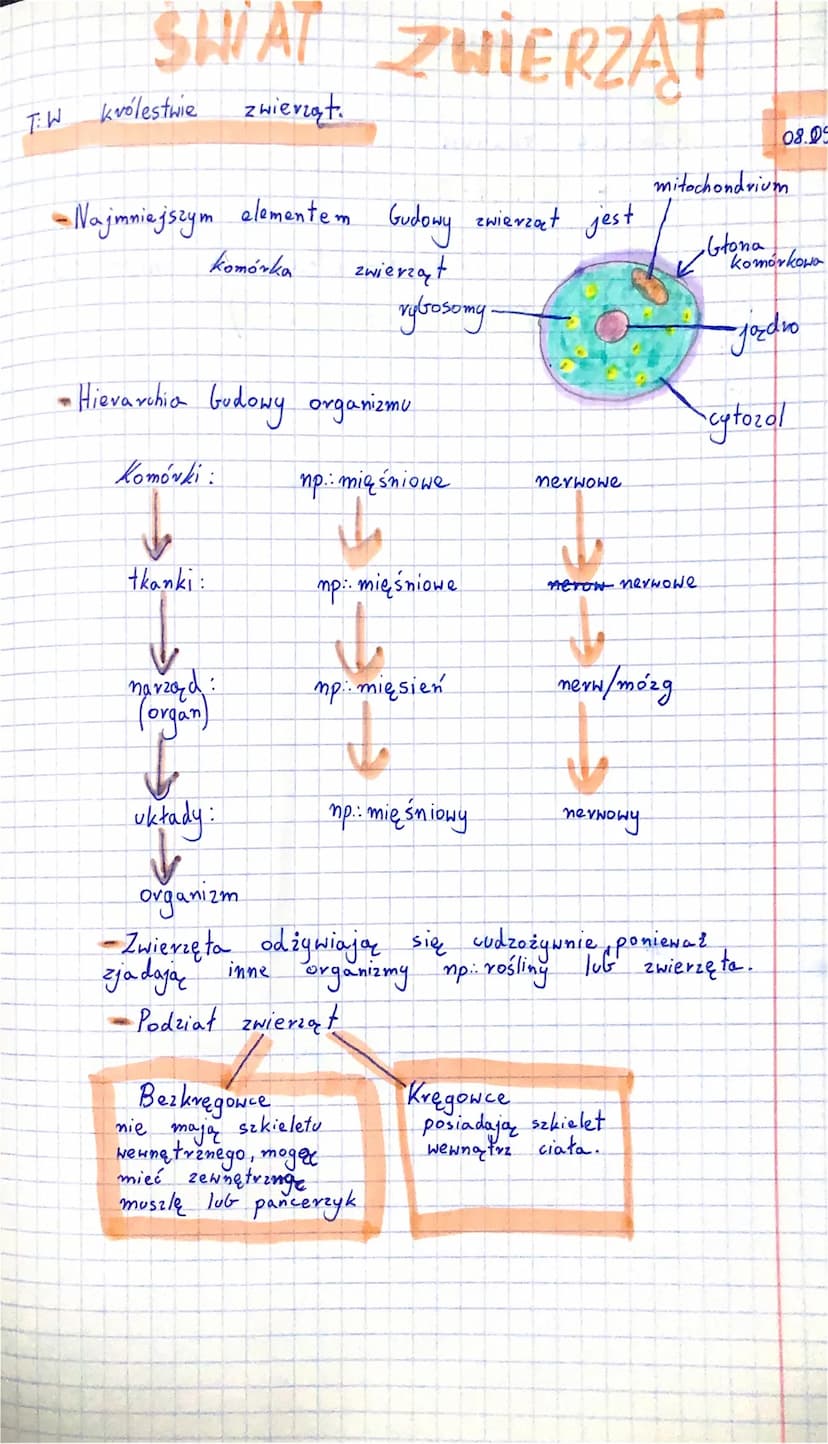 ŚWIAT ZWIERZĄT
T: W królestwie zwierząt.
08.09
- Najmniejszym elementem budowy zwierząt jest
komórka zwierząt
mitochondrium
błona
komórkowa
rybosomy
jądro
cytozol
- Hierarchia budowy organizmu
Komórki: np.: mięśniowe nerwowe
tkanki: np.: mięśniowe nerwowe
narząd: np.: mięsień nerw/mózg
(organ)
układy: np.: mięśniowy nerwowy
organizm
- Zwierzęta odżywiają się cudzożywnie, ponieważ
zjadają inne organizmy np.: rośliny lub zwierzęta.
- Podział zwierząt
Bezkręgowce
nie mają szkieletu
wewnętrznego, mogą
mieć zewnętrzną
muszlę lub pancerzyk
Kręgowce
posiadają szkielet
wewnątrz ciała.